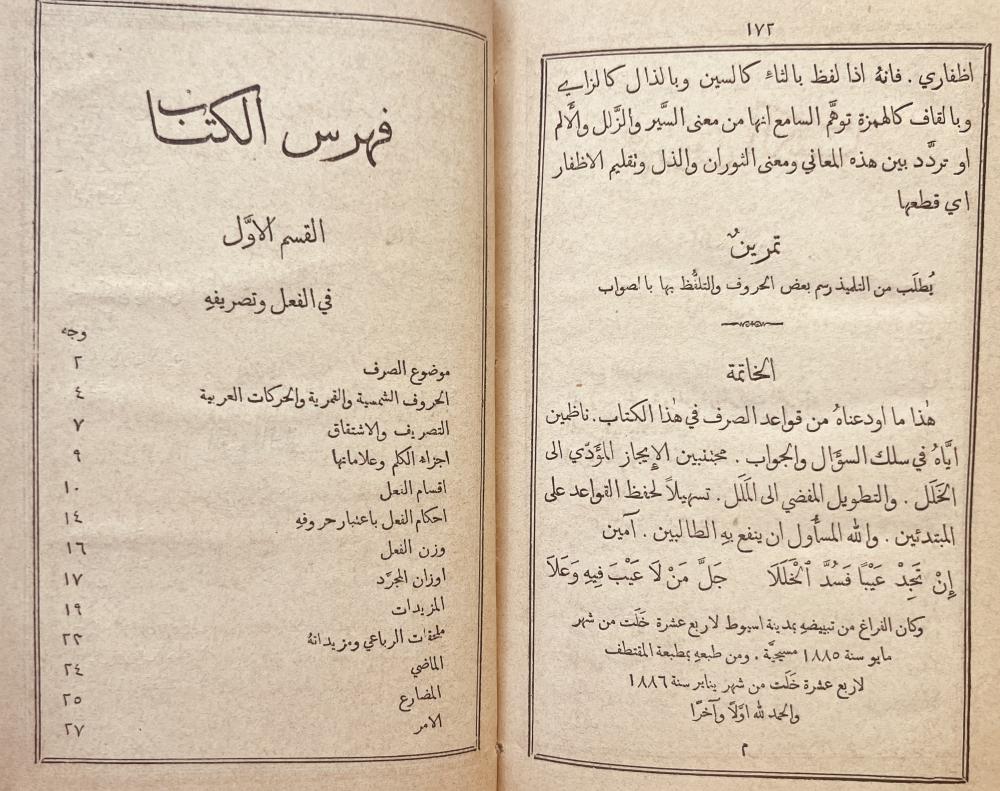 ١٧٢
اظفاري . فانهُ اذا لفظ بالثاء كالسين وبالذال كالزاي
وبالقاف كالهمزة توهَّم السامع انها من معنى السَّير والزَّلل والأَلم
او تردَّد بين هذه المعاني ومعنى الثوران والذل وتقليم الاظفار
اي قطعها
تمرينٌ
يُطلَب من التلميذ رسم بعض الحروف والتلفُّظ بها بالصواب
الخاتمة
هٰذا ما اودعناهُ من قواعد الصرف في هٰذا الكتاب . ناظمين
ايَّاهُ في سلك السؤَال والجواب . مجتنبين الإِيجاز المؤَدّي الى
الخَلَل . والتطويل المفضي الى المَلَل . تسهيلاً لحفظ القواعد على
المبتدئين . والله المسأُول ان ينفع بهِ الطالبين . آمين
إِنْ تَجِدْ عَيْبًا فَسُدَّ ٱلْخَلَلَا جَلَّ مَنْ لَا عَيْبَ فِيهِ وَعَلَا
وكان الفراغ من تبييضهِ بمدينة اسيوط لاربع عشرة خَلَت من شهر
مايو سنة ١٨٨٥ مسيحيَّة . ومن طبعهِ بمطبعة المقتطف
لاربع عشرة خَلَت من شهر يناير سنة ١٨٨٦
والحمد لله اوَّلاً وآخرًا
م
فهرس الكتاب
القسم الاوَّل
في الفعل وتصريفهِ
وجه
موضوع الصرف ٢
الحروف الشمسية والقمرية والحركات العربية ٤
التصريف والاشتقاق ٧
اجزاء الكلم وعلاماتها ٩
اقسام الفعل ١٠
احكام الفعل باعتبار حروفهِ ١٤
وزن الفعل ١٦
اوزان المجرَّد ١٧
المزيدات ١٩
ملحقات الرباعي ومزيداتهُ ٢٢
الماضي ٢٤
المضارع ٢٥
الامر ٢٧